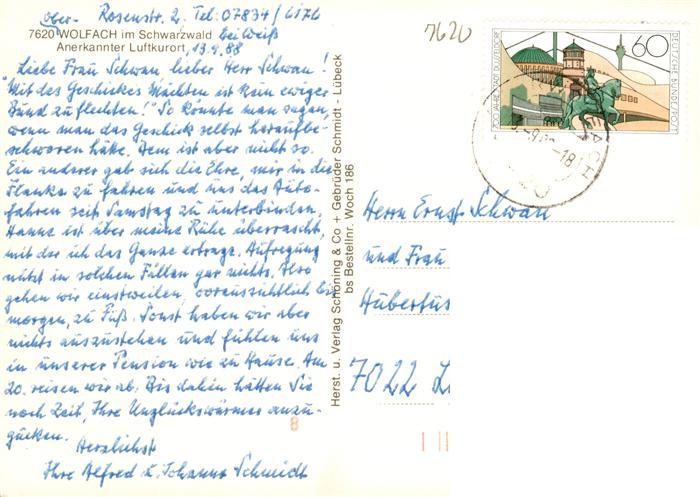 Ober- Rosenstr. 2. Tel: 07834/6176
7620 WOLFACH im Schwarzwald bei Weiß
Anerkannter Luftkurort, 13.9.88
Liebe Frau Schwan, lieber Herr Schwan!
"Mit des Geschickes Mächten ist kein ewiger
Bund zu flechten!" So könnte man sagen,
wenn man das Geschick selbst heraufbe-
schworen hätte. Dem ist aber nicht so.
Ein anderer gab sich die Ehre, mir in die
Flanke zu fahren und uns das Auto-
fahren seit Samstag zu unterbinden.
Hanne ist über meine Ruhe überrascht,
mit der ich das Ganze ertrage. Aufregung
nützt in solchen Fällen gar nichts. Also
gehen wir einstweilen, voraussichtlich bis
morgen, zu Fuß. Sonst haben wir aber
nichts auszustehen und fühlen uns
in unserer Pension wie zu Hause. Am
20. reisen wir ab. Bis dahin hätten Sie
noch Zeit, Ihre Unglückswürmer anzu-
gucken.
Herzlichst
Ihre Alfred u. Johanna Schmidt
8
Herst. u. Verlag Schöning & Co + Gebrüder Schmidt - Lübeck
bs Bestellnr. Woch 186
7620
60
DEUTSCHE BUNDESPOST
700 JAHRE STADT DÜSSELDORF
Herrn Ernst Schwan
und Frau
Hubertus
7022 L